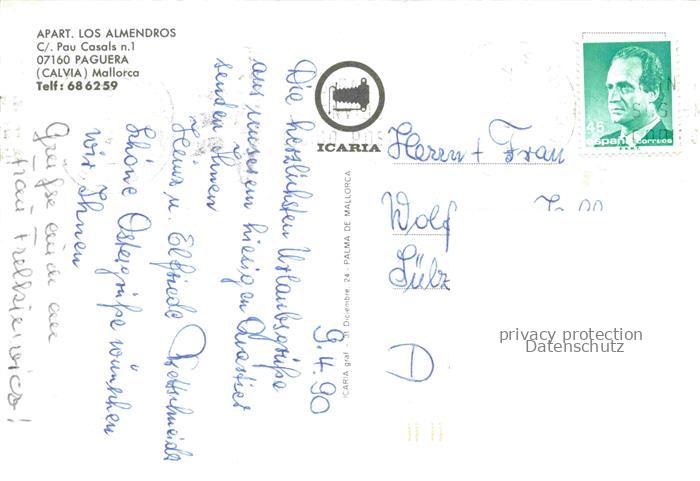 APART. LOS ALMENDROS
C/. Pau Casals n.1
07160 PAGUERA
(CALVIA) Mallorca
Telf: 686259
9.4.90
Die herzlichsten Urlaubsgrüße
aus unserem hiesigen Quartier
senden Ihnen
Heinz u. Elfriede
Schöne Ostergrüße wünschen
wir Ihnen
Grüße auch an
Frau
ICARIA
ICARIA graf. - 31 Diciembre, 24 - PALMA DE MALLORCA
48
España correos
Herrn + Frau
Wolf
Sülz
D
privacy protection
Datenschutz